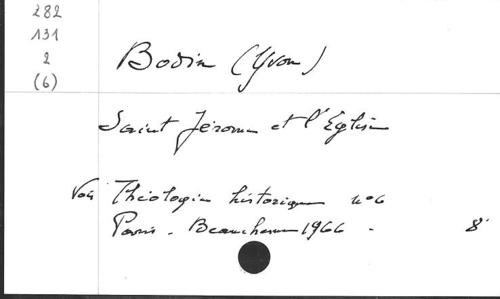 282
131
2
(6)
Bodin (Yvon)
Saint Jérome et l'Eglise
Voir Théologie historique n°6
Paris - Beauchesne 1966 - 8°